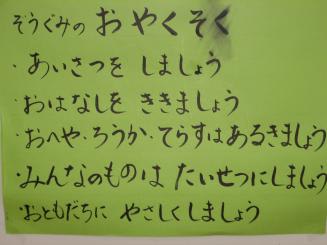 ぞうぐみの おやくそく
・あいさつを しましょう
・おはなしを ききましょう
・おへや・ろうか・てらすはあるきましょう
・みんなのものは たいせつにしましょう
・おともだちに やさしくしましょう